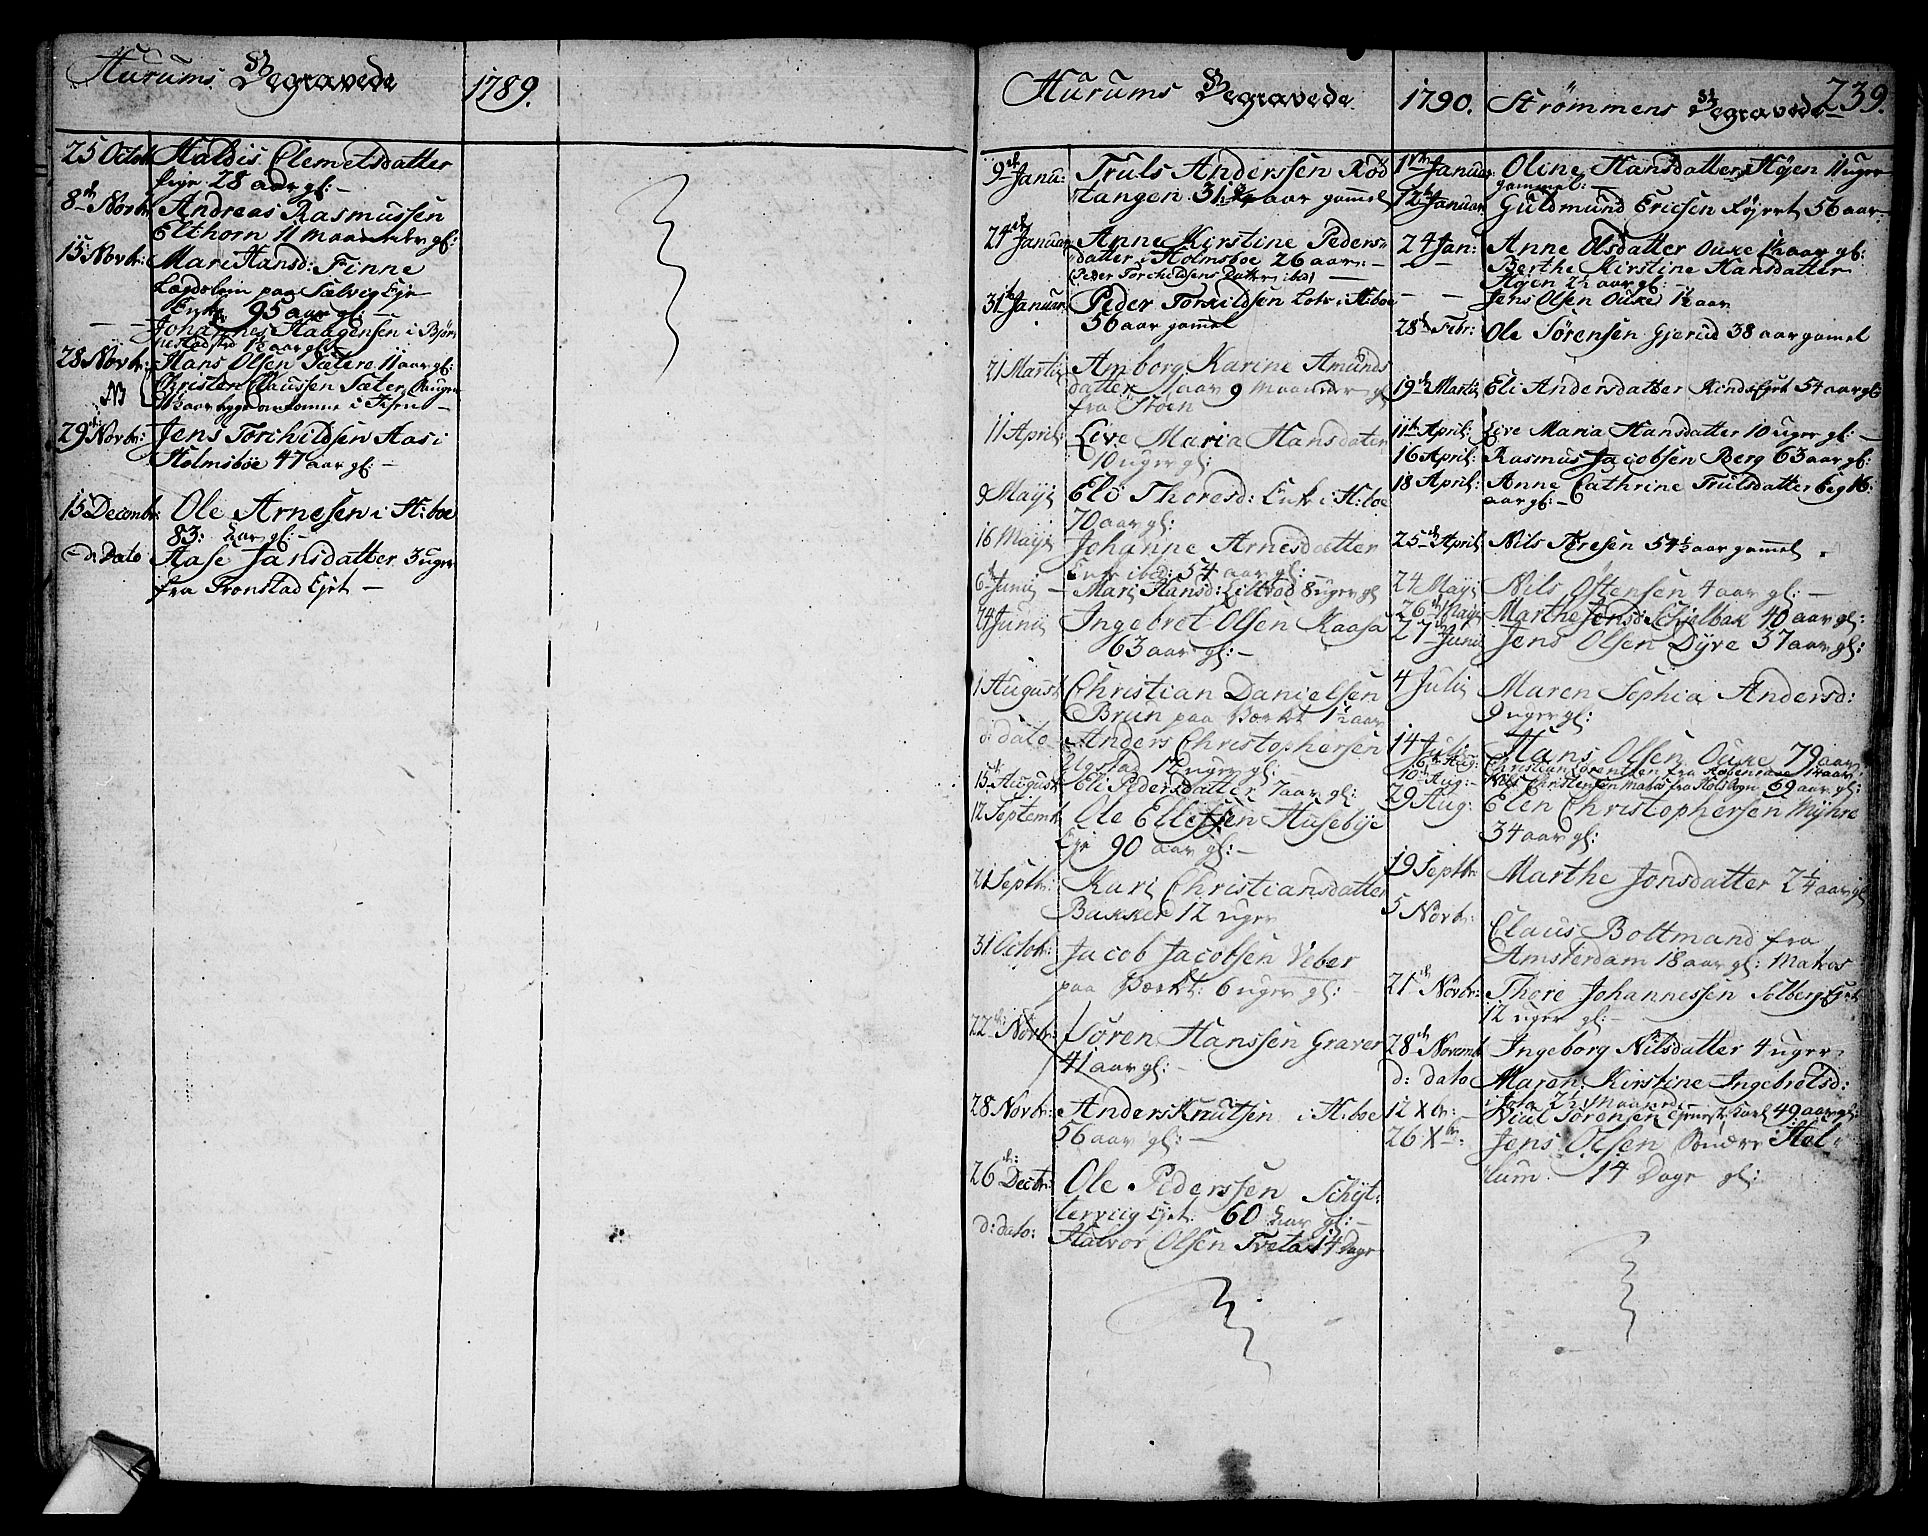 Hurums Begravede 1789.
25 Octob: Haldis Clemetsdatter
Eige 28 aar gl: -
8de Novb: Andreas Rasmussen
Elthorn 11 Maaneder gl:
15 Novbr: Mari Hansd: Finne
Lagdslem paa Sætvig Eje
Enke 95 aar gl: -
- - Johannes Haagensen i Biør
1½ aar gl:
28 Novbr: Hans Olsen Sætere 11 aar gl:
NB Christen Claussen Sæter
11½ aar begge omkomne i Isen -
29de Novbr: Jens Torchildsen Aas i
Holmsboe 47 aar gl: -
15 Decembr: Ole Arnesen i H:boe
83: aar gl: -
- d: Dato Aase Jansdatter 3 uger
fra Tronstad Ejet -
Hurums Begravede 1790.
9de Janu: Truls Anderssen Rød
tangen 31 ¾ aar gammel
24de Januar Anne Kirstine Peders
datter i Holmsboe 26 aar: -
(Peder Torchildsens Datter ibd) -
31te Januar Peder Torkildsen Lots i H:boe
56 aar gamel
21 Martii Amborg Karine Amunds
datter 1 aar 9 Maaneder gl
fra Støen
11 April: Live Maria Hansdater
10 uger gl:
9 Maji Elø Thoresd: Enk: i H:boe
70 aar gl:
16 Maji Johanne Arnesdatter
Enke ibid: 54 aar gl:
6de Junii - Mari Hansd: Liltvod 8 uger gl
24 Junii Ingebret Olsen Kaasa
63 aar gl: -
1 August Christian Danielsen
Brun paa Værkt 1½ aar
d: dato - Anders Christophersen
Ulgstad 12 uger gl:
15de August Eli Pedersdatter 7 aar gl:
12 Septemb Ole Ellefsen Husebye
Eje 90 aar gl: -
21 Septbr: Kari Christiansdatter
Bakker 12 uger
31 Octob: Jacob Jacobsen Veber
paa Værkt: 6 uger gl: -
22de Novbr: Sören Hanssen Graver
41 aar gl: -
28 Novbr: Anders Knutsen i H:boe
56 aar gl: -
26de Decbr: Ole Pederssen Schÿt:
tervüg Ejet. 60 aar gl: -
d: dato: Halvor Olsen Tveta 14 Dage
Strømmens Begravede 239.
1ste Januar Oline Hansdatter Høyen 11 uger
gammel: -
12te Januar Guldmund Ericsen Føyret 56 aar
24 Jan: Anne Olsdatter Ouke 1½ aar gl:
- - Berthe Kirstine Hansdatter
Høen 2½ aar gl: -
- - Jens Olsen Ouke 1½ aar
28de Febr: Ole Sørensen Gjerud 38 aar gamel
19de Martii Eli Andersdatter Kinds Ejet 54 aar gl:
11te April: Live Maria Hansdatter 10 uger gl: -
16 April: Rasmus Jacobsen Berg 63 aar gl:
18 April: Anne Cathrine Trulsdatter Beg 16:
aar gl: -
25de April Nils Aresen 54½ aar gamel
24 Maji Nils Oftensen 4 aar gl: -
26de Maji Marthe Jensd: Schjelbak 40 aar gl:
27de Junii Jens Olsen Dÿre 37 aar gl:
4 Julii Maren Sophia Andersd:
9 uger gl:
14 Julii Hans Olsen Ouke 79 aar
6te Aug: Christian Lorentzen fra Aabenraae aar
10de Aug: - Nils Christensen Matros fra 69 aar gl:
29 Aug: Elen Christophersen Myhre
34 aar gl:
19 Septbr Marthe Jonsdatter 2¼ aar gl
5 Novbr: Claus Boltmand fra
Amsterdam 18 aar gl: Matros
21de Novbr: Thore Johannessen Solberg Ejet
12 uger gl: -
28de Novemb Ingeborg Nilsdatter 4 uger
d: dato Maren Kirstine Ingebretsd:
i Jola 2½ Maaneder -
12 Xbr: - Niels Sörensen Karl 49 aar gl:
26 Xbr: Jens Olsen Søndre Hol
tum 14 Dage gl: